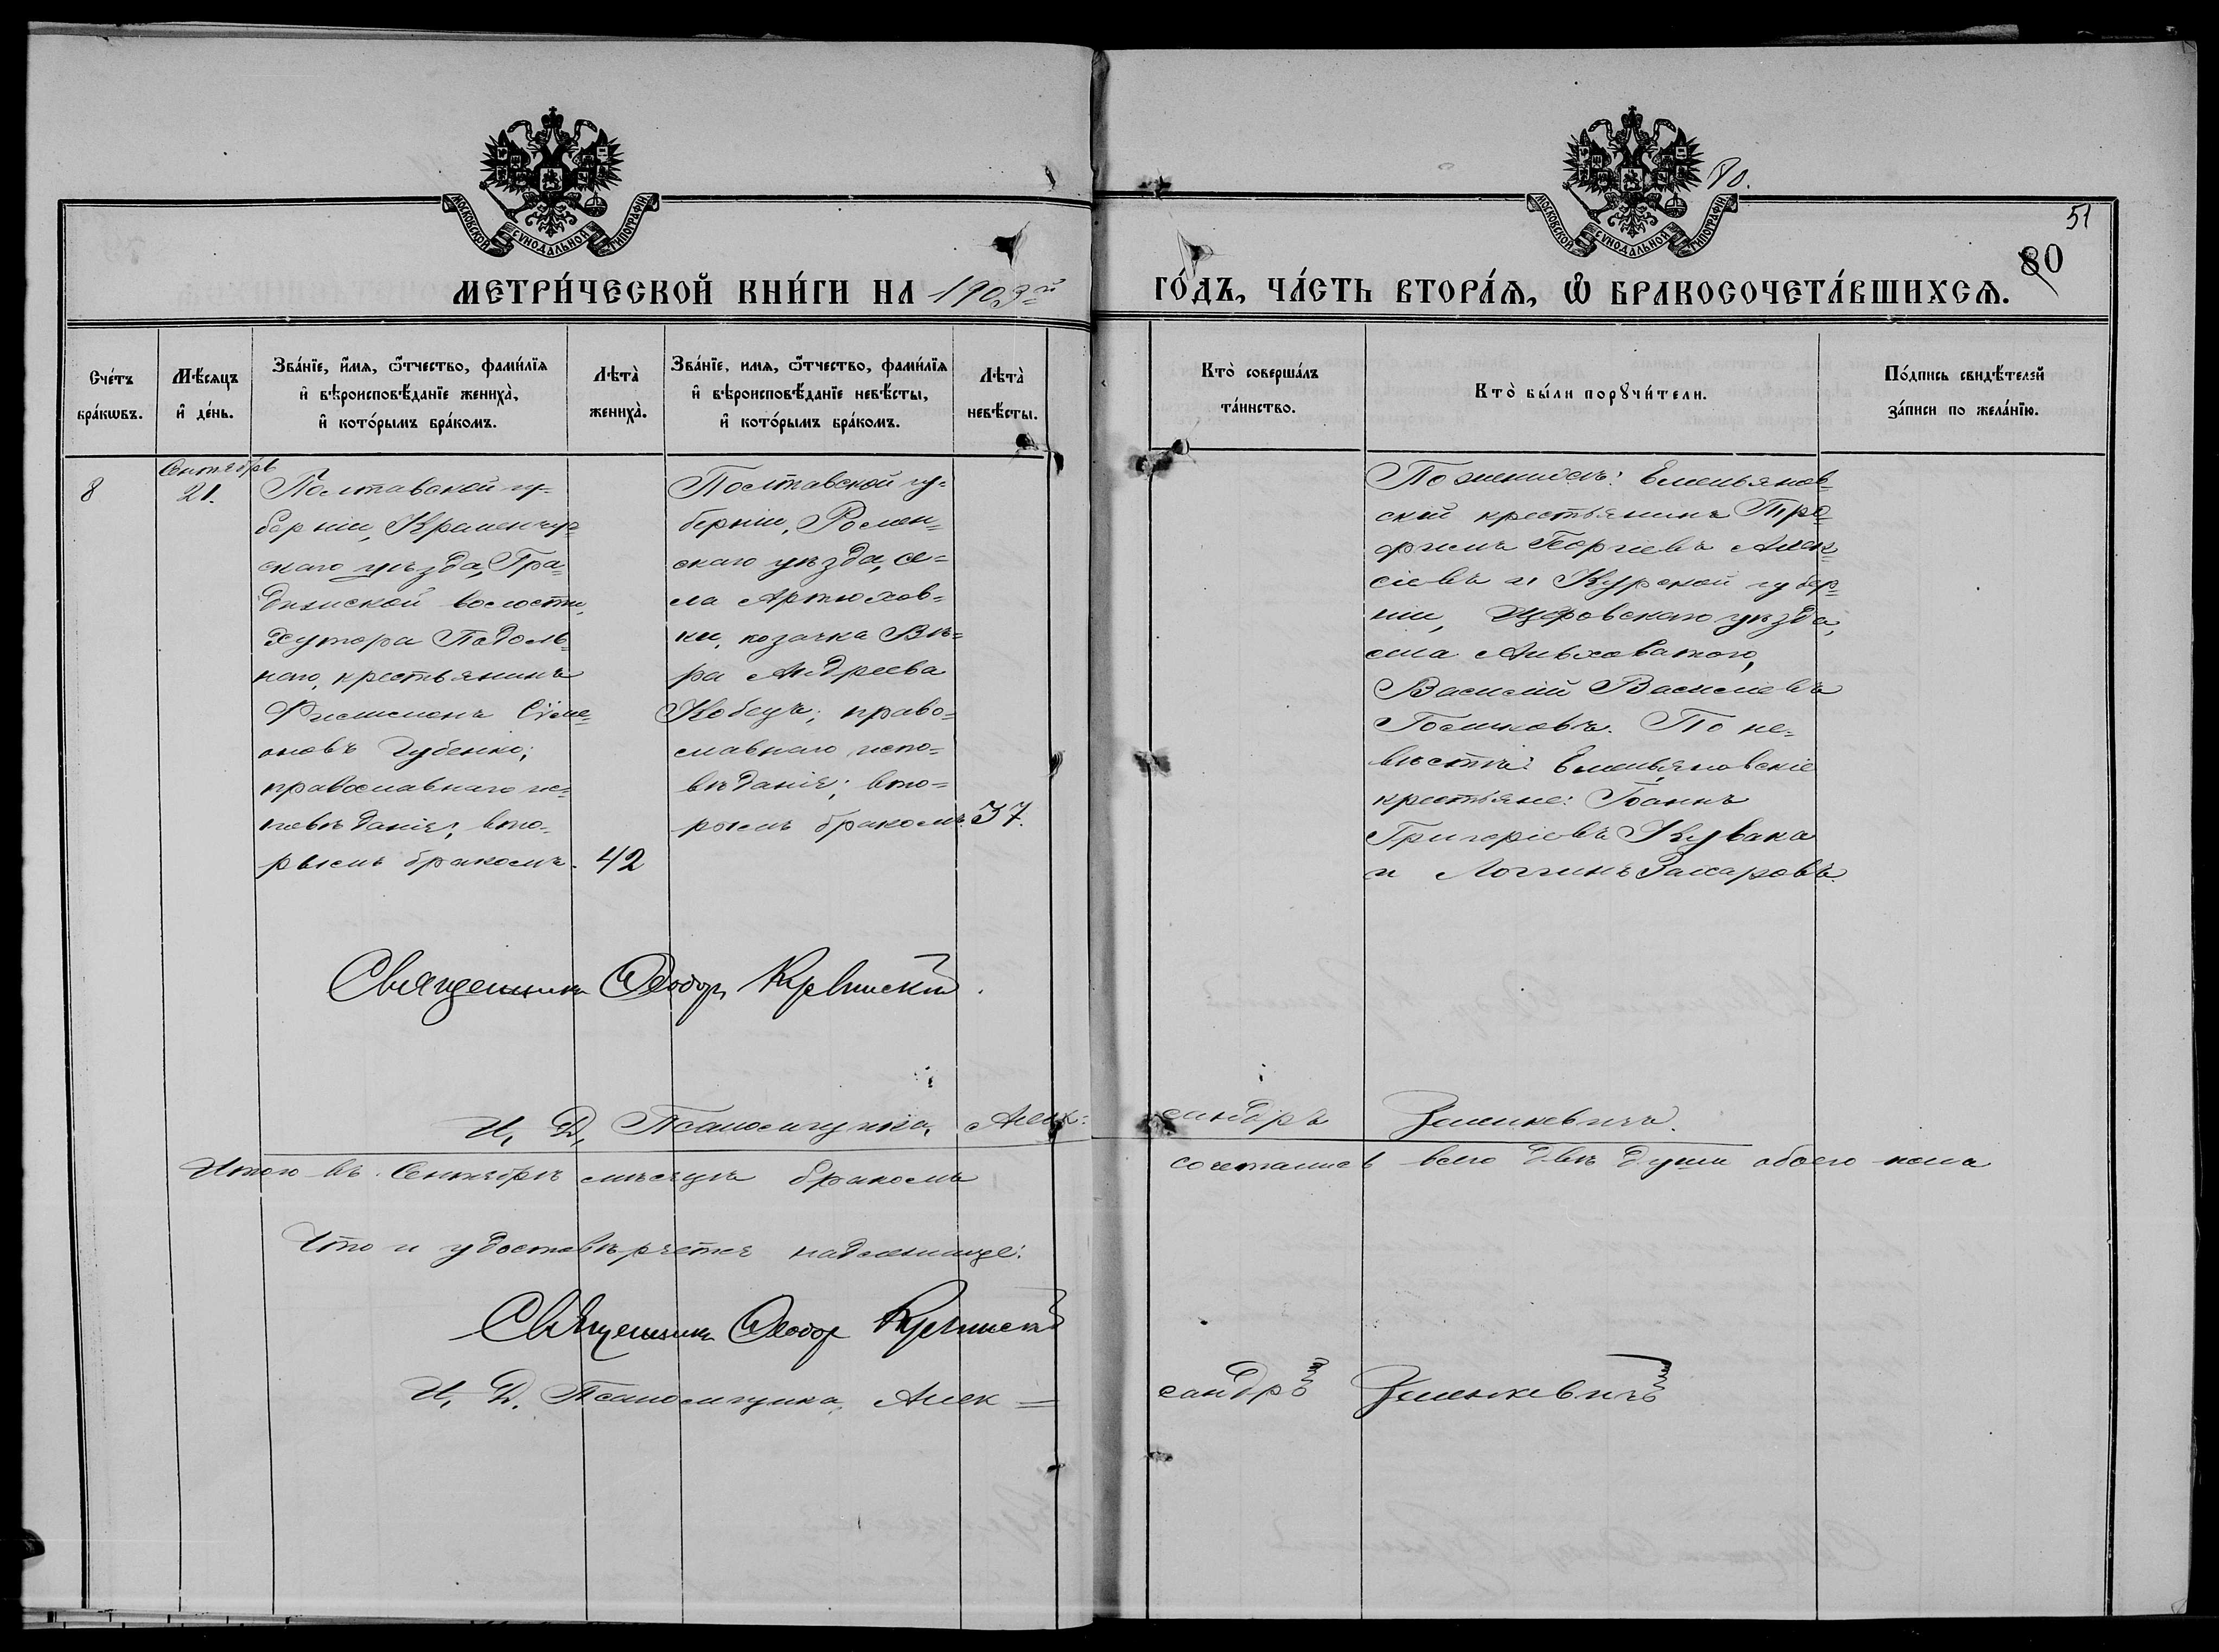 80.
51
80
МОСКОВСКОЙ СѴНОДАЛЬНОЙ ТИПОГРАФІИ
МОСКОВСКОЙ СѴНОДАЛЬНОЙ ТИПОГРАФІИ
МЕТРИ́ЧЕСКОЙ КНИ́ГИ НА 1903й
ГО́ДЪ, ЧА́СТЬ ВТОРА́Я, Ѡ БРАКОСОЧЕТА́ВШИХСЯ.
Сче́тъ
бра́кѡвъ.
Мѣ́сяцъ
и҆ де́нь.
Зва́нїе, и҆́мя, ѻ҆́тчество, фами́лїя
и҆ вѣроисповѣ́данїе жениха̀,
и҆ кото́рымъ бра́комъ.
Лѣта̀
жениха̀.
Зва́нїе, имя, ѻ҆́тчество, фами́лїя
и҆ вѣроисповѣ́данїе невѣ́сты,
и҆ кото́рымъ бра́комъ.
Лѣта̀
невѣ́сты.
Кто̀ соверша́лъ
та́инство.
Кто̀ бы́ли порꙋчи́тели.
По́дпись свидѣ́телей
за́писи по жела́нїю.
8
Сентябрь
21.
Полтавской гу-
берніи, Кременчуг-
скаго уѣзда, Гра-
дижской волости,
хутора Подоль-
наго, крестьянинъ
Филимонъ Сѵме-
оновъ Губенко;
православнаго ис-
повѣданія; вто-
рымъ бракомъ.
42
Полтавской гу-
берніи, Ромен-
скаго уѣзда, се-
ла Артюхов-
ки, козачка Вѣ-
ра Андреева
Кобецъ; право-
славнаго испо-
вѣданія; вто-
рымъ бракомъ.
37.
По женихѣ: Емельянов-
скій крестьянинъ Тро-
фимъ Георгіевъ Алек-
сіевъ и Курской губер-
ніи, Щигровскаго уѣзда,
села Ольховатого,
Василій Василіевъ
Голиковъ. По не-
вѣстѣ: Емельяновскіе
крестьяне: Іоаннъ
Григоріевъ Кувака
и Логгинъ Захаровъ.
Священникъ Ѳеодоръ
И. Д. Псаломщика, Алек-
сандръ Зеленкевичъ.
Итого въ Сентябрѣ мѣсяцѣ бракомъ
сочеталисъ всего двѣ души обоего пола
Что и удостовѣряется надлежаще:
Священникъ Ѳеодоръ
И. Д. Псаломщика, Алек-
сандръ Зеленкевичъ